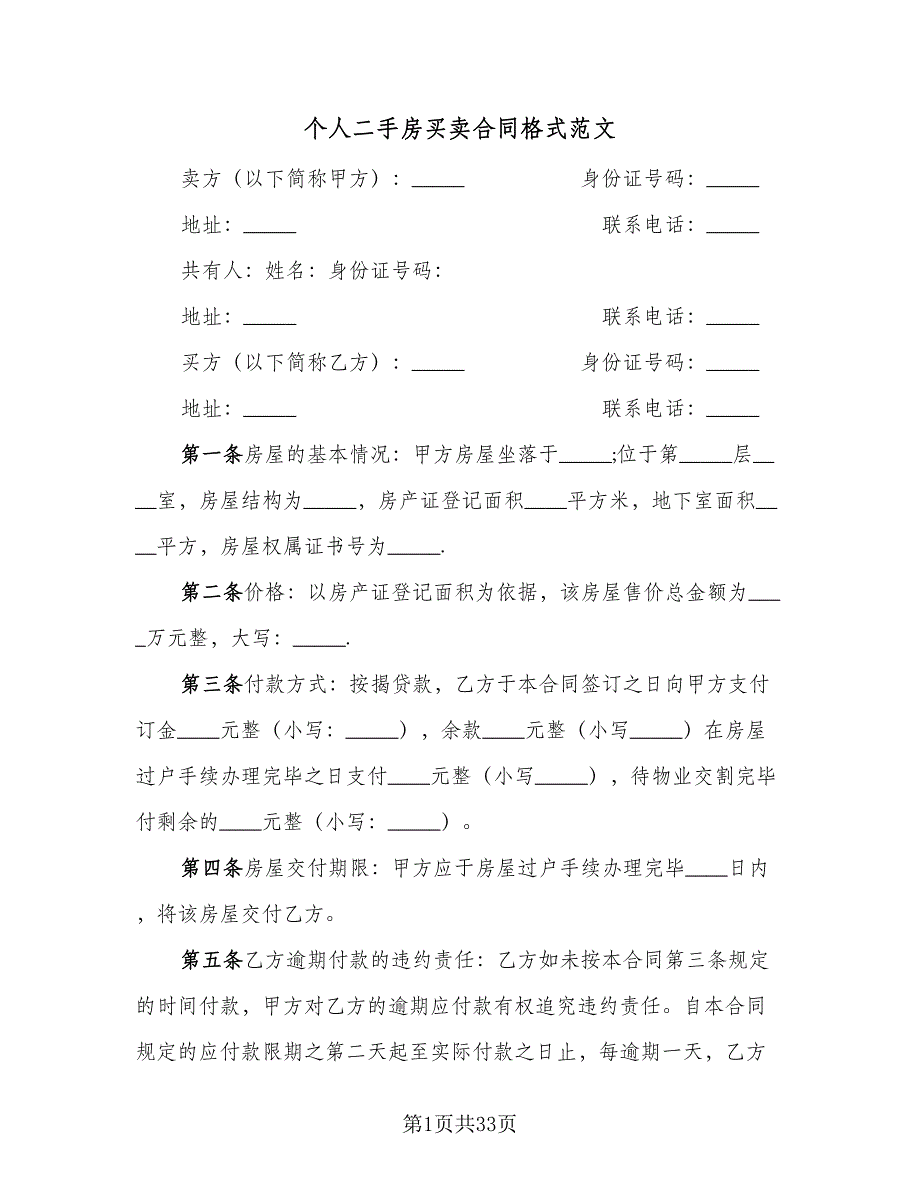 个人二手房买卖合同格式范文
卖方（以下简称甲方）：_____ 身份证号码：_____
地址：_____ 联系电话：_____
共有人：姓名：身份证号码：
地址：_____ 联系电话：_____
买方（以下简称乙方）：_____ 身份证号码：_____
地址：_____ 联系电话：_____
第一条房屋的基本情况：甲方房屋坐落于_____;位于第_____层__
__室，房屋结构为_____，房产证登记面积____平方米，地下室面积__
__平方，房屋权属证书号为_____.
第二条价格：以房产证登记面积为依据，该房屋售价总金额为___
_万元整，大写：_____.
第三条付款方式：按揭贷款，乙方于本合同签订之日向甲方支付
订金____元整（小写：_____），余款____元整（小写_____）在房屋
过户手续办理完毕之日支付____元整（小写_____），待物业交割完毕
付剩余的____元整（小写：_____）。
第四条房屋交付期限：甲方应于房屋过户手续办理完毕____日内
，将该房屋交付乙方。
第五条乙方逾期付款的违约责任：乙方如未按本合同第三条规定
的时间付款，甲方对乙方的逾期应付款有权追究违约责任。自本合同
规定的应付款限期之第二天起至实际付款之日止，每逾期一天，乙方
第1页共33页